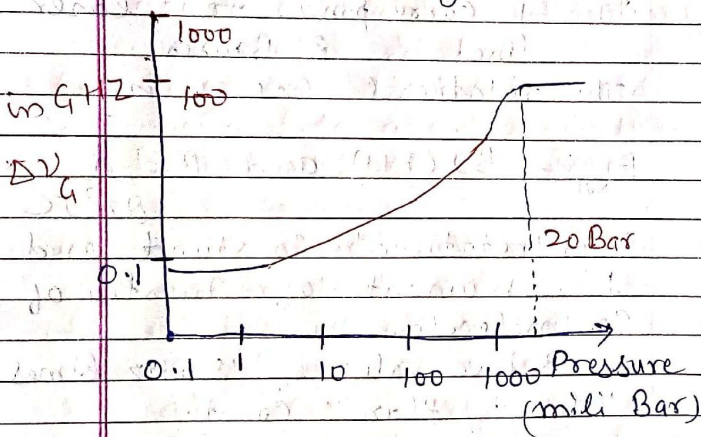 1000
in GHZ 100
ΔνG
20 Bar
0.1
0.1 1 10 100 1000 Pressure
(mili Bar)